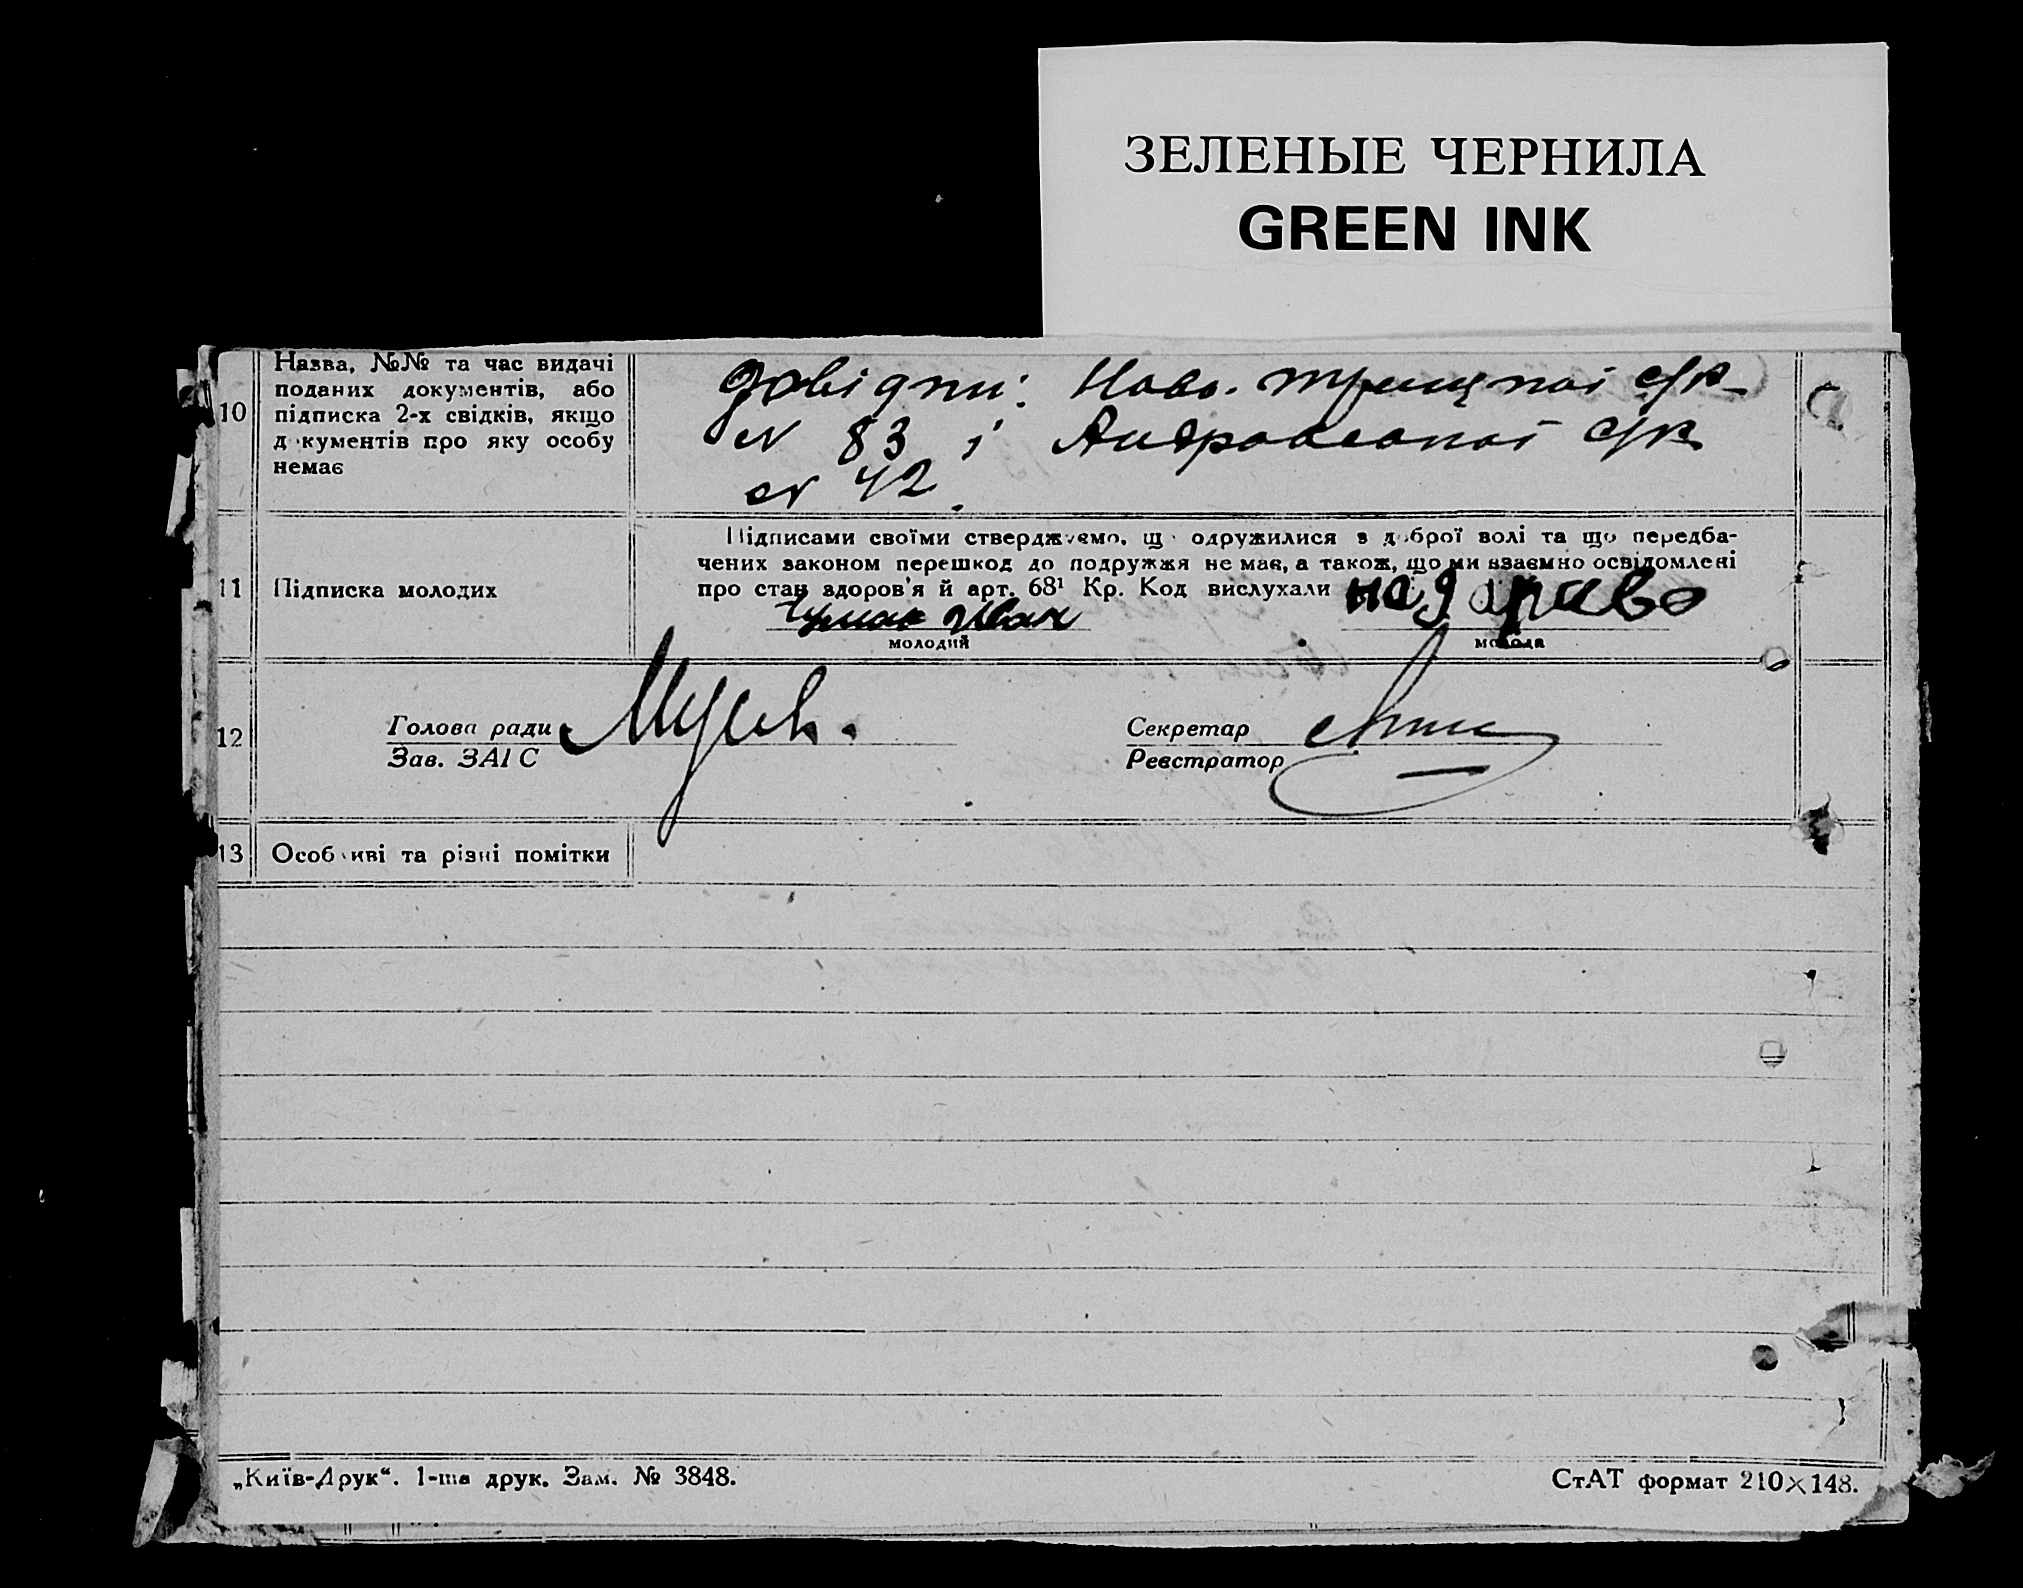 ЗЕЛЕНЫЕ ЧЕРНИЛА
GREEN INK
10
Назва, №№ та час видачі
поданих документів, або
підписка 2-х свідків, якщо
д кументів про яку особу
немає
довідки:
№ 83 і с/р
№ 42.
11
Підписка молодих
Підписами своїми стверджуємо, що одружилися з доброї волі та що передба-
чених законом перешкод до подружжя не має, а також, що ми взаємно освідомлені
про стан здоров'я й арт. 68¹ Кр. Код вислухали
Чумак Иван
молодий
молода
12
Голова ради
Зав. ЗАГС
Секретар
Реєстратор
13
Особливі та різні помітки
„Київ-Друк“. 1-ша друк. Зам. № 3848.
СтАТ формат 210×148.